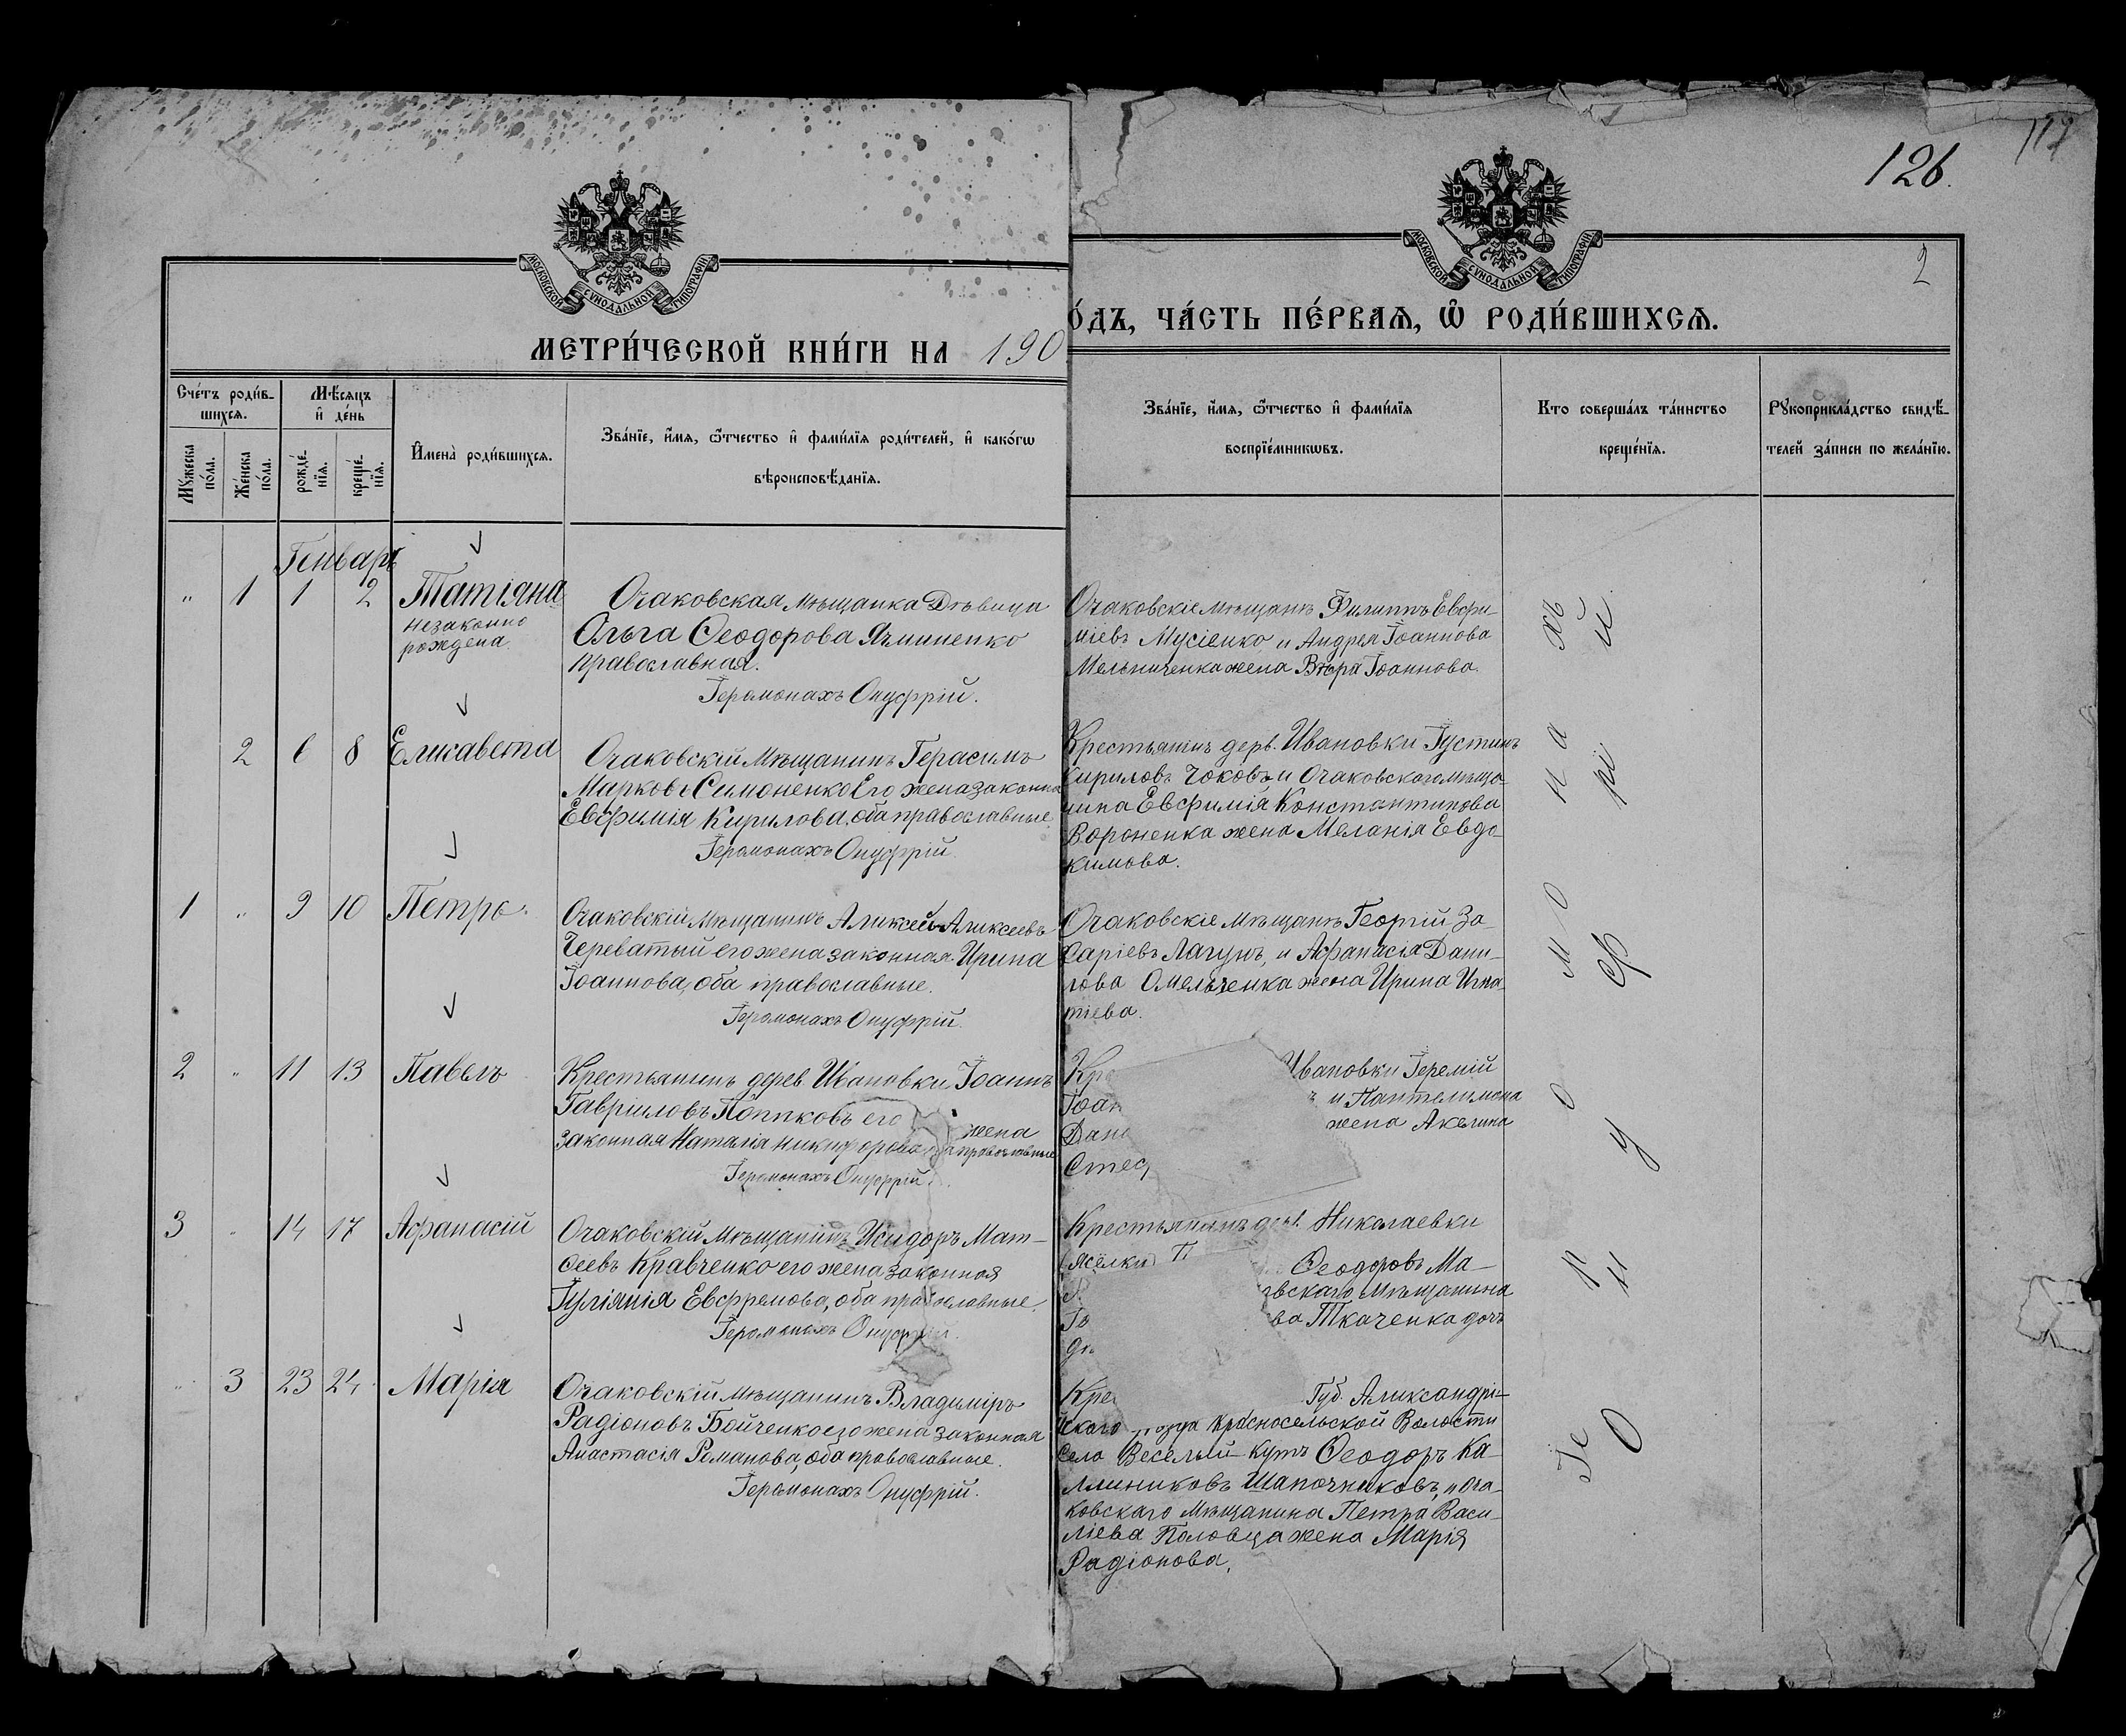 117
126.
2
МОСКОВСКОЙ СѴНОДАЛЬНОЙ ТИПОГРАФІИ
МОСКОВСКОЙ СѴНОДАЛЬНОЙ ТИПОГРАФІИ
МЕТРИ́ЧЕСКОЙ КНИ́ГИ НА 190
О́ДЪ, ЧА́СТЬ ПЕ́РВАѦ, Ѿ РОДИ́ВШИХСѦ.
Сче́тъ роди́в-
шихсѧ.
Мꙋ́жеска
по́ла.
Же́нска
по́ла.
Мѣ́сѧцъ
и҆ де́нь
рожде́-
нїѧ.
креще́-
нїѧ.
И҆мена̀ роди́вшихсѧ.
Зва́нїе, и҆́мѧ, ѻ҆́тчество и҆ фами́лїѧ роди́телей, и҆ како́гѡ
вѣроисповѣ́данїѧ.
Зва́нїе, и҆́мѧ, ѻ҆́тчество и҆ фами́лїѧ
воспрїе́мникѡвъ.
Кто соверша́лъ та́инство
креще́нїѧ.
Рꙋкоприкла́дство свидѣ́-
телей за́писи по жела́нїю.
Генварь
" 1 1 2 Татіяна
незаконно
рождена.
Очаковская мѣщанка Дѣвица
Ольга Ѳеодорова Ячмненко
православная.
Іеромонахъ Онуфрій.
Очаковскіе мѣщанѣ Филиппъ Евфи-
міевъ Мусіенко и Андрея Іоаннова
Мельниченка жена Вѣра Іоаннова.
2 6 8 Елисавета
Очаковскій Мѣщанинъ Герасимъ
Марковъ Симоненко Его жена законна
Евфимія Кирилова, оба православные
Іеромонахъ Онуфрій.
Крестьянинъ дерв. Ивановки Іустинъ
Кириловъ Чоковъ, и Очаковского мѣща-
нина Евфимія Константинова
Вороненка жена Меланія Евдо-
кимова.
1 " 9 10 Петръ.
Очаковскій мѣщанинъ Аликсей Аликсеевъ
Череватый его жена законная Ирина
Іоаннова, оба православные.
Іеромонахъ Онуфрій.
Очаковскіе мѣщанѣ Георгій За-
харіевъ Лагунъ, и Афанасія Дани-
лова Омельченка жена Ирина Игна-
тіева.
2 " 11 13 Павелъ
Крестьянинъ дерев Ивановки Іоаннъ
Гавріиловъ Поппковъ его жена
законная Наталія Никифорова православные
Іеромонахъ Онуфрій.
Кре Ивановки Іеремій
Іоан ъ и Пантелимона
Дано жена Акелина
Стеф
3 " 14 17 Афанасій
Очаковскій мѣщанинъ Исидоръ Мат-
феевъ Кравченко его жена законная
Іуліянія Евфремова, оба православные.
Іеромонахъ Онуфрій.
Крестьянинъ дерв. Николаевки
(Яселки) П Ѳеодоровъ Ма-
вскаго мѣщанина
Іо ва Ткаченка дочь
" 3 23 24 Марія
Очаковскій мѣщанинъ Владиміръ
Радіоновъ Бойченко его жена законная
Анастасія Романова, оба православные.
Іеромонахъ Онуфрій.
Кре Губ. Александрі-
йскаго уѣзда Красносельской Волости
села Веселый-Кутъ Ѳеодоръ Ка-
линиковъ Шапочниковъ, и Оча-
ковскаго мѣщанина Петра Васи-
ліева Половца жена Марія
Радіонова.
Іеромонахъ
Онуфрій